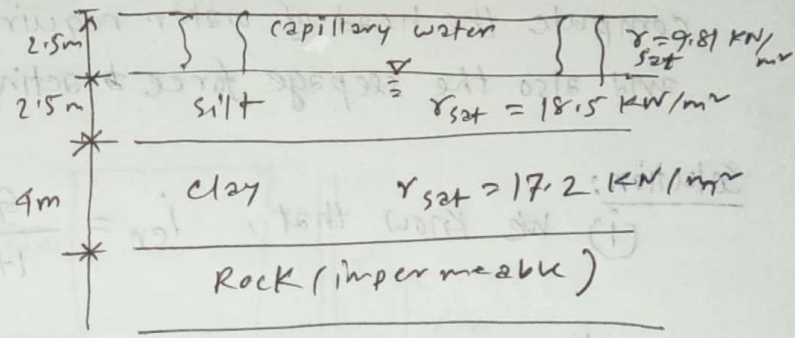 2.5m capillary water γsat = 9.81 KN/m²
2.5m silt γsat = 18.5 KN/m²
4m clay γsat = 17.2 KN/m²
Rock (impermeable)